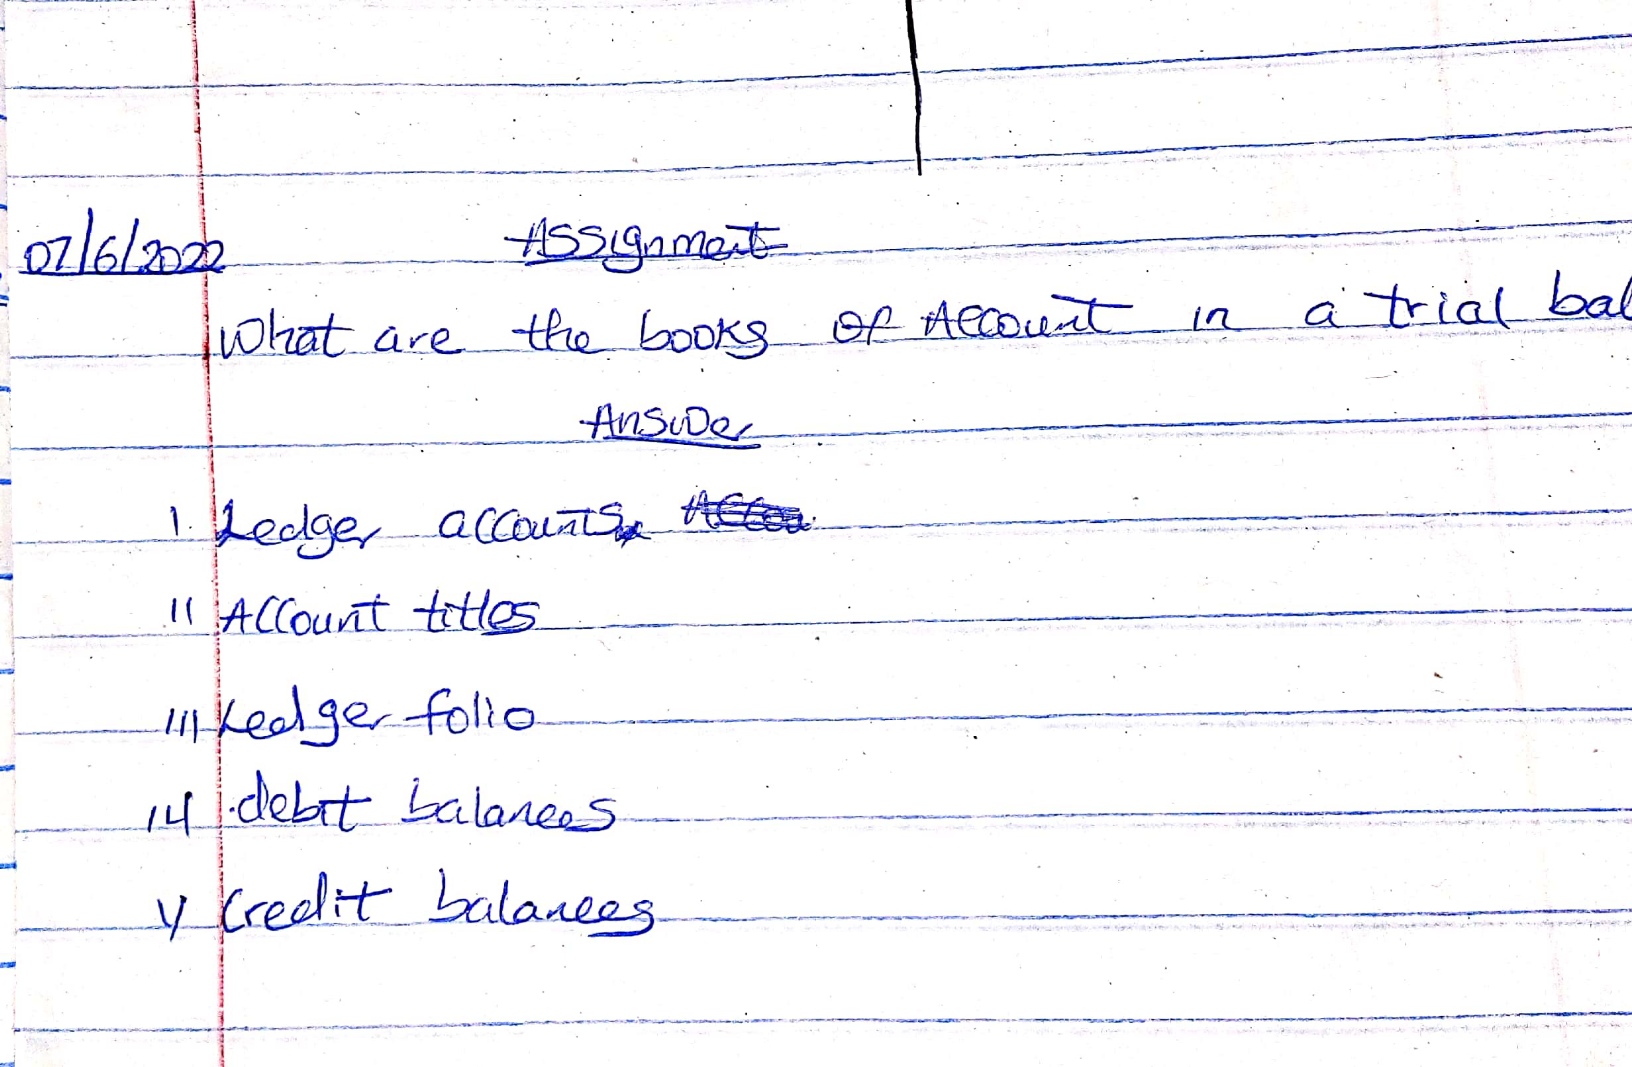 07/6/2022 Assignment
What are the books of Account in a trial bal
Answer
I. Ledger accounts
II Account titles
III Ledger folio
IV. debit balances
V Credit balances